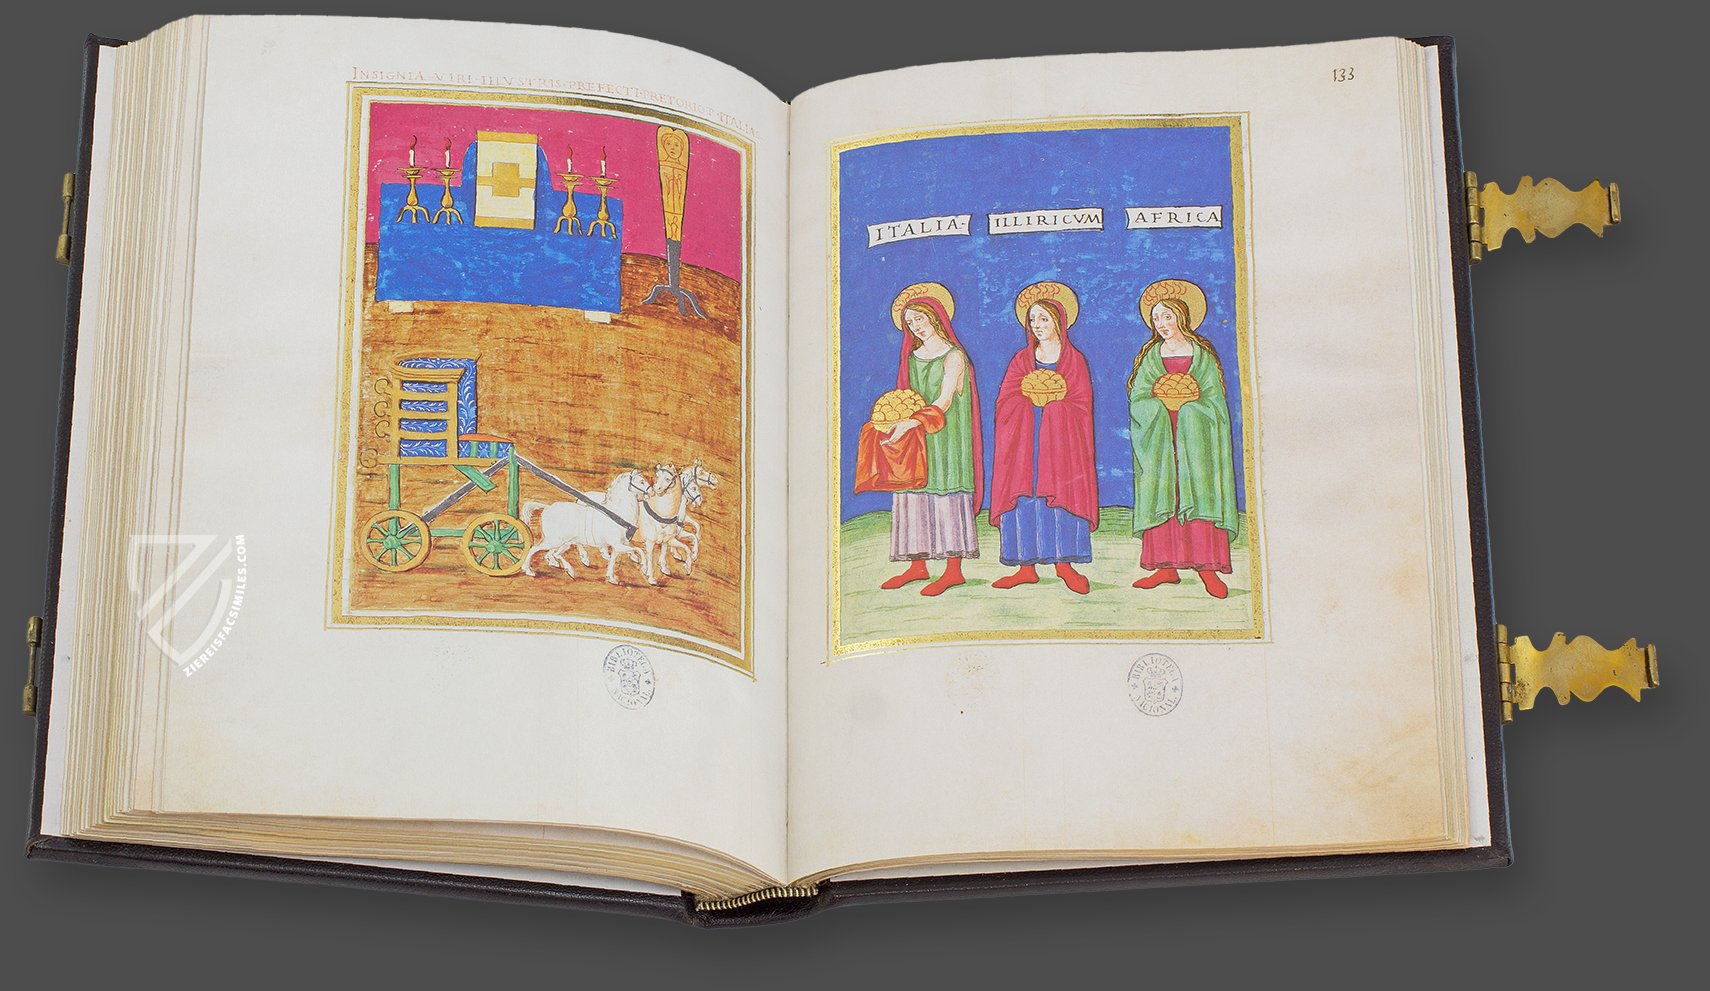 INSIGNIA·VIRI·ILLVSTRIS·PREFECTI·PRETORIO·P·ITALIAE
133
ITALIA·
ILLIRICVM
AFRICA
ZIEREISFACSIMILES.COM
BIBLIOTECA NACIONAL
BIBLIOTECA NACIONAL